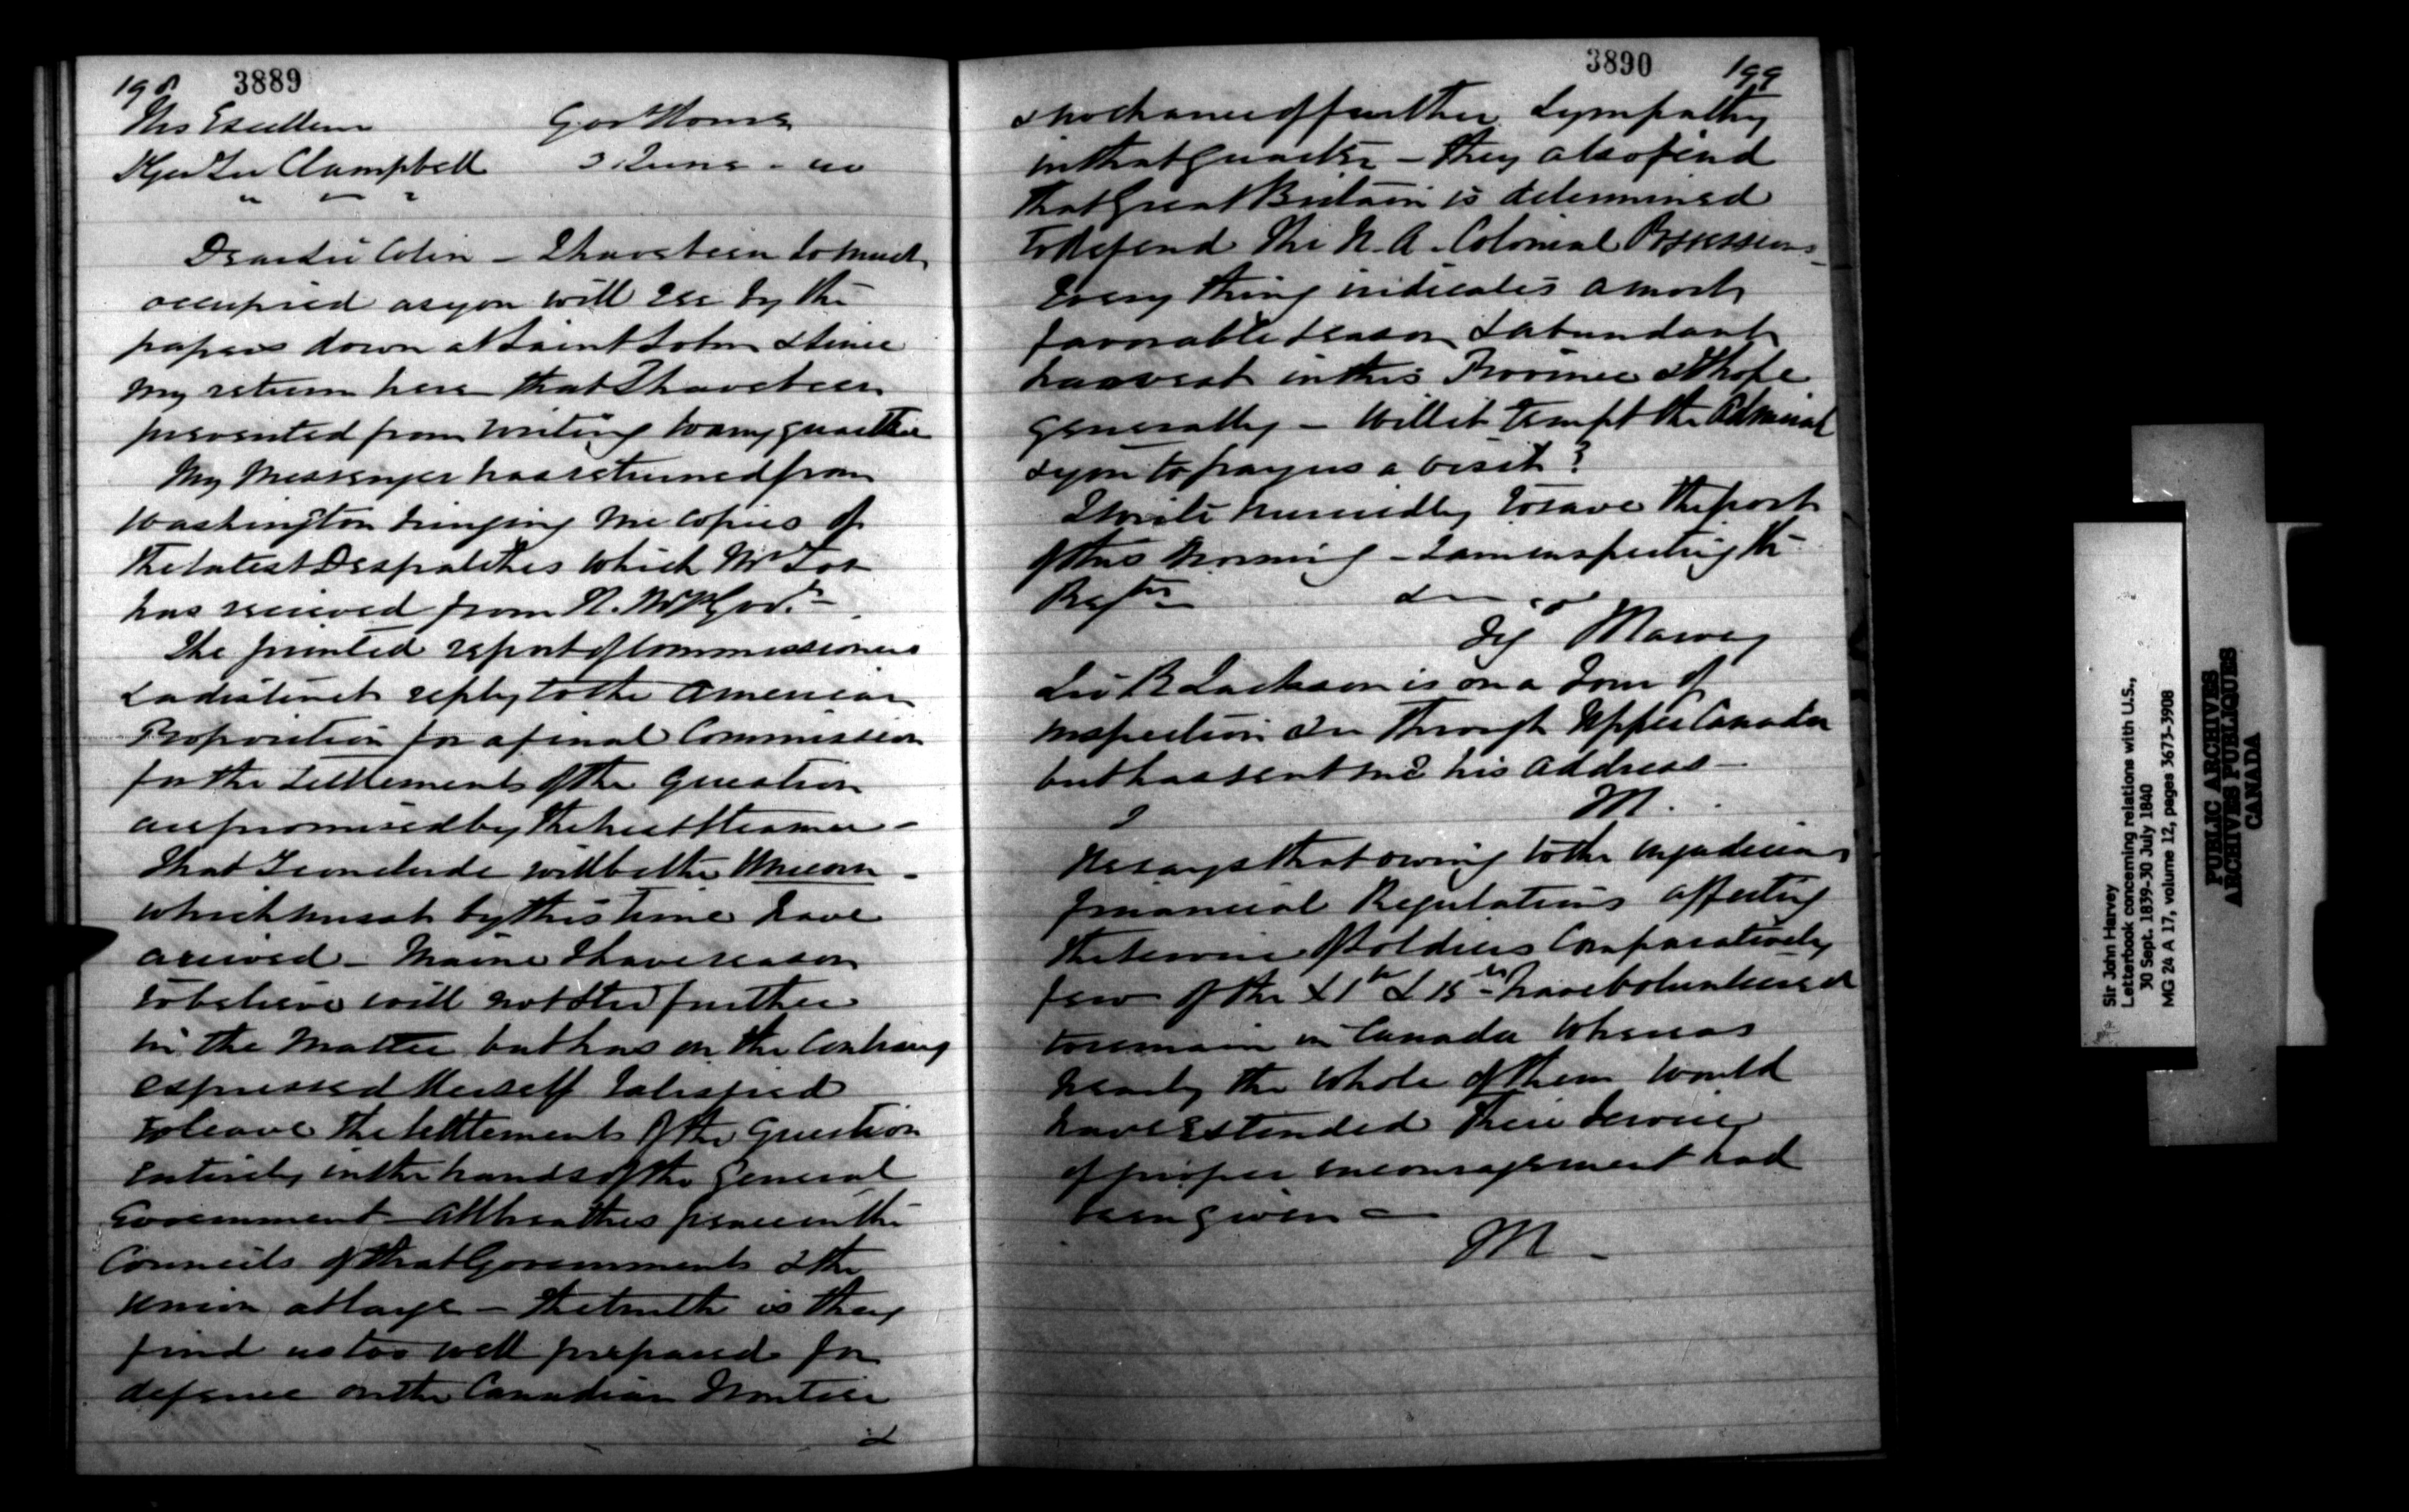 198 3889
His Excellem Gov House
M Gen Sir C Campbell 3 June - 40
" " "
Dear Sir Colin - I have been so much
occupied as you will see by the
papers down at Saint John & since
my return here that I have been
prevented from writing to any quarter
My Messenger has returned from
Washington bringing me copies of
the latest Despatches which Mr Fox
has received from H. M Govt -
The printed report of Commissioners
& a distinct reply to the American
Proposition for a final Commission
for the Settlement of the question
are promised by the next Steamer -
that I conclude will be the Unicorn -
which must by this time have
arrived - Maine I have reason
to believe will not stir further
in the Matter but has on the Contrary
expressed herself satisfied
to leave the settlement of the question
entirely in the hands of the General
Government - All breathes peace in the
Councils of that Government & the
Union at large - The truth is they
find us too well prepared for
defence on the Canadian Frontier
&
3890 199
& no chance of further Sympathy
in that quarter - they also find
that Great Britain is determined
to defend the N. A. Colonial Possessions -
Every thing indicates a most
favorable season & abundant
harvest in this Province & I hope
generally - Will it tempt the Admiral
& you to pay us a visit?
I write hurriedly to save the post
of this Morning - I am inspecting the
Regts &c
Sig J Harvey
Sir R Jackson is on a Tour of
inspection &c through Upper Canada
but has sent me his address -
H.
He says that owing to the injudicious
financial Regulations affecting
the service of soldiers Comparatively
few of the & 15th have volunteered
to remain in Canada whereas
nearly the whole of them would
have extended their service
if proper encouragement had
been given -
H -
Sir John Harvey
Letterbook concerning relations with U.S.,
30 Sept. 1839-30 July 1840
MG 24 A 17, volume 12, pages 3673-3908
PUBLIC ARCHIVES
ARCHIVES PUBLIQUES
CANADA